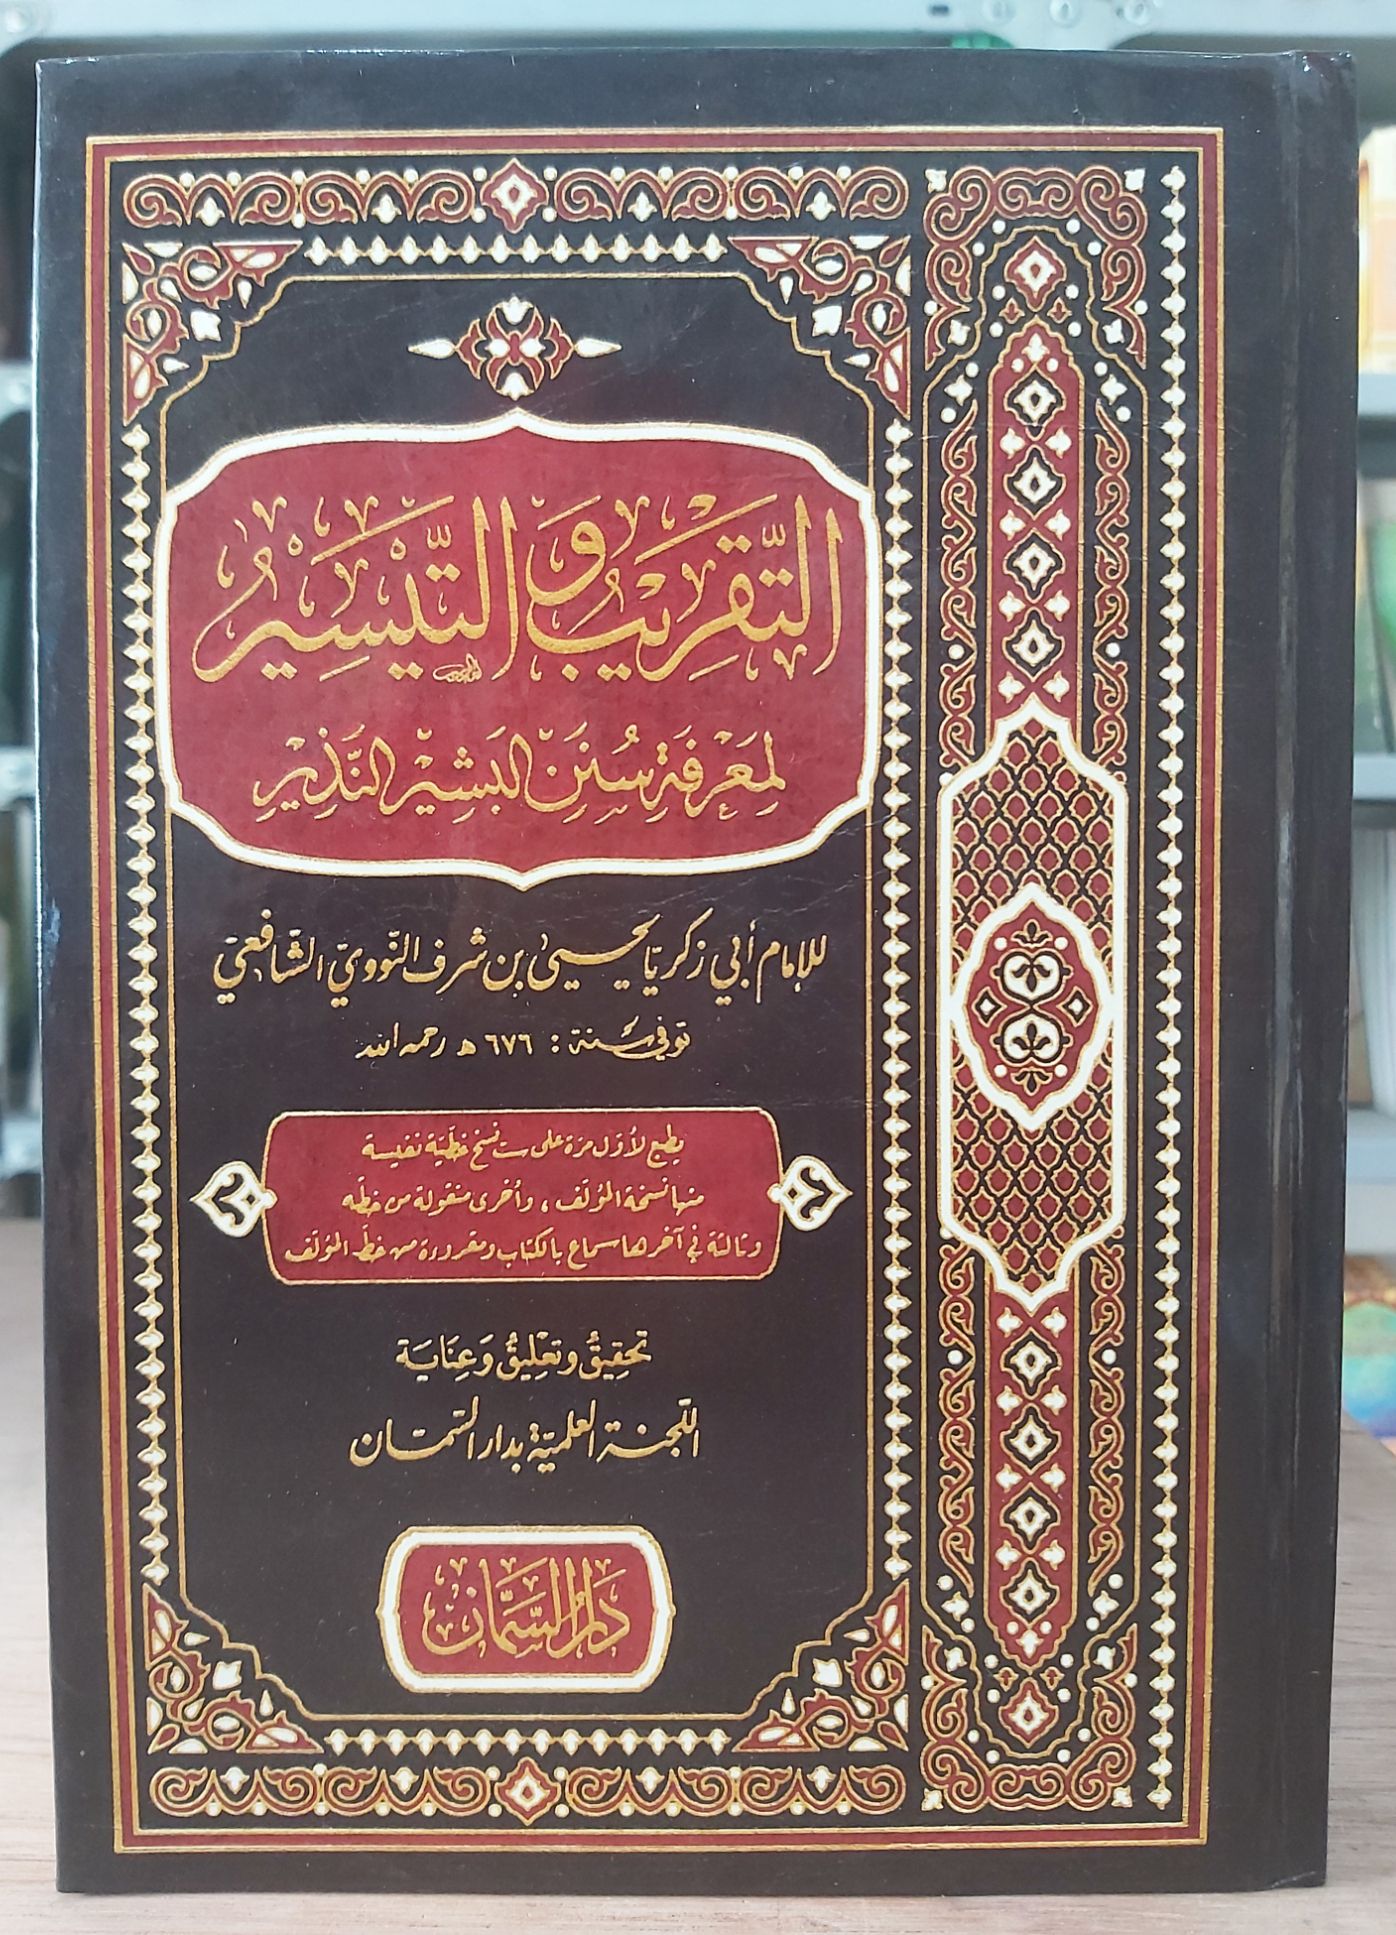 التَّقْرِيْبُ وَالتَّيْسِيْرُ
لِمَعْرِفَةِ سُنَنِ الْبَشِيْرِ النَّذِيْرِ
للإمام أبي زكريّا يحيى بن شرف النّووي الشّافعي
توفي سنة : ٦٧٦ ه رحمه الله
يطبع لأوّل مرة على ست نسخ خطّيّة نفيسة
منها نسخة المؤلّف ، وأخرى منقولة من خطّه
وثالثة في آخرها سماع بالكتاب ومقروءة من خطّ المؤلّف
تحقِيقُ وتعْلِيقُ وَعِنَايَة
اللّجنة العلميّة بدار السّمّان
دَارُ السَّمَّان